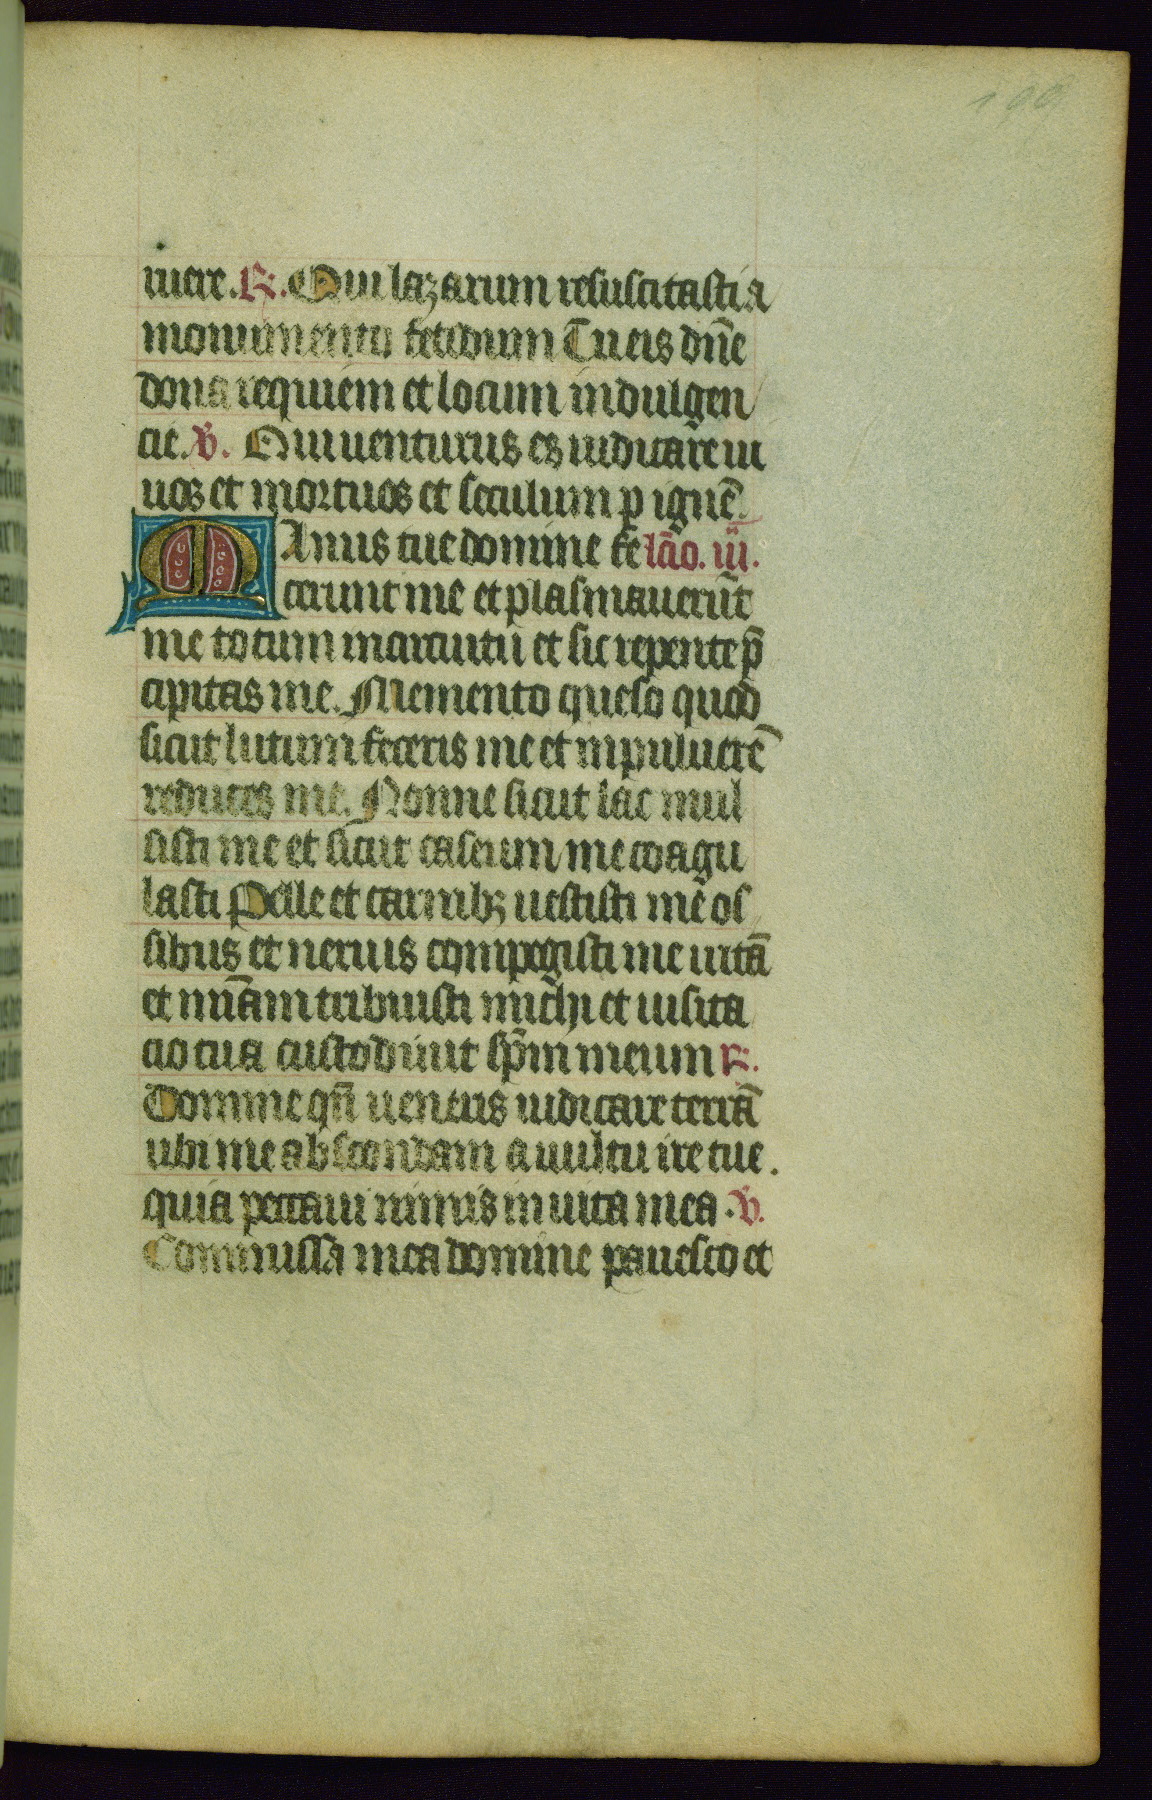 199
uiere. R. Qui lazarum resuscitasti a
monumento fetidum Tu eis dñe
dona requiem et locum indulgen
cie. V. Qui uenturus es iudicare ui
uos et mortuos et seculum p ignē.
Manus tue domine fe lc̄o. iij.
cerunt me et plasmauerūt
me totum in circuitu et sic repente p̄
cipitas me. Memento queso quod
sicut lutum feceris me et in puluerē
reduces me. Nonne sicut lac mul
sisti me et sicut caseum me coagu
lasti Pelle et carnibꝫ uestisti me os
sibus et neruis compegisti me uitā
et mīam tribuisti michi et uisita
cio tua custodiuit sp̄m meum R.
Domine qn̄ ueneris iudicare terrā
ubi me abscondam a uultu ire tue.
quia peccaui nimis in uita mea. V.
Commissa mea domine pauesco et